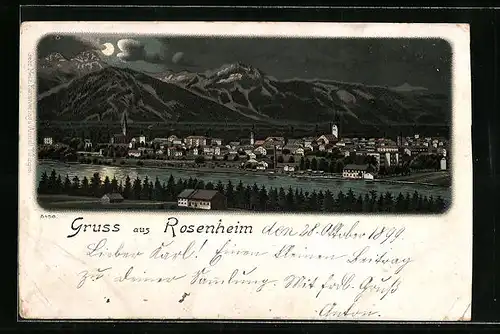 Gruss aus Rosenheim den 28. Oktober 1899.
Lieber Karl! Einen kleinen Beitrag
zu deiner Samlung. Mit frdl. Gruß
Anton.